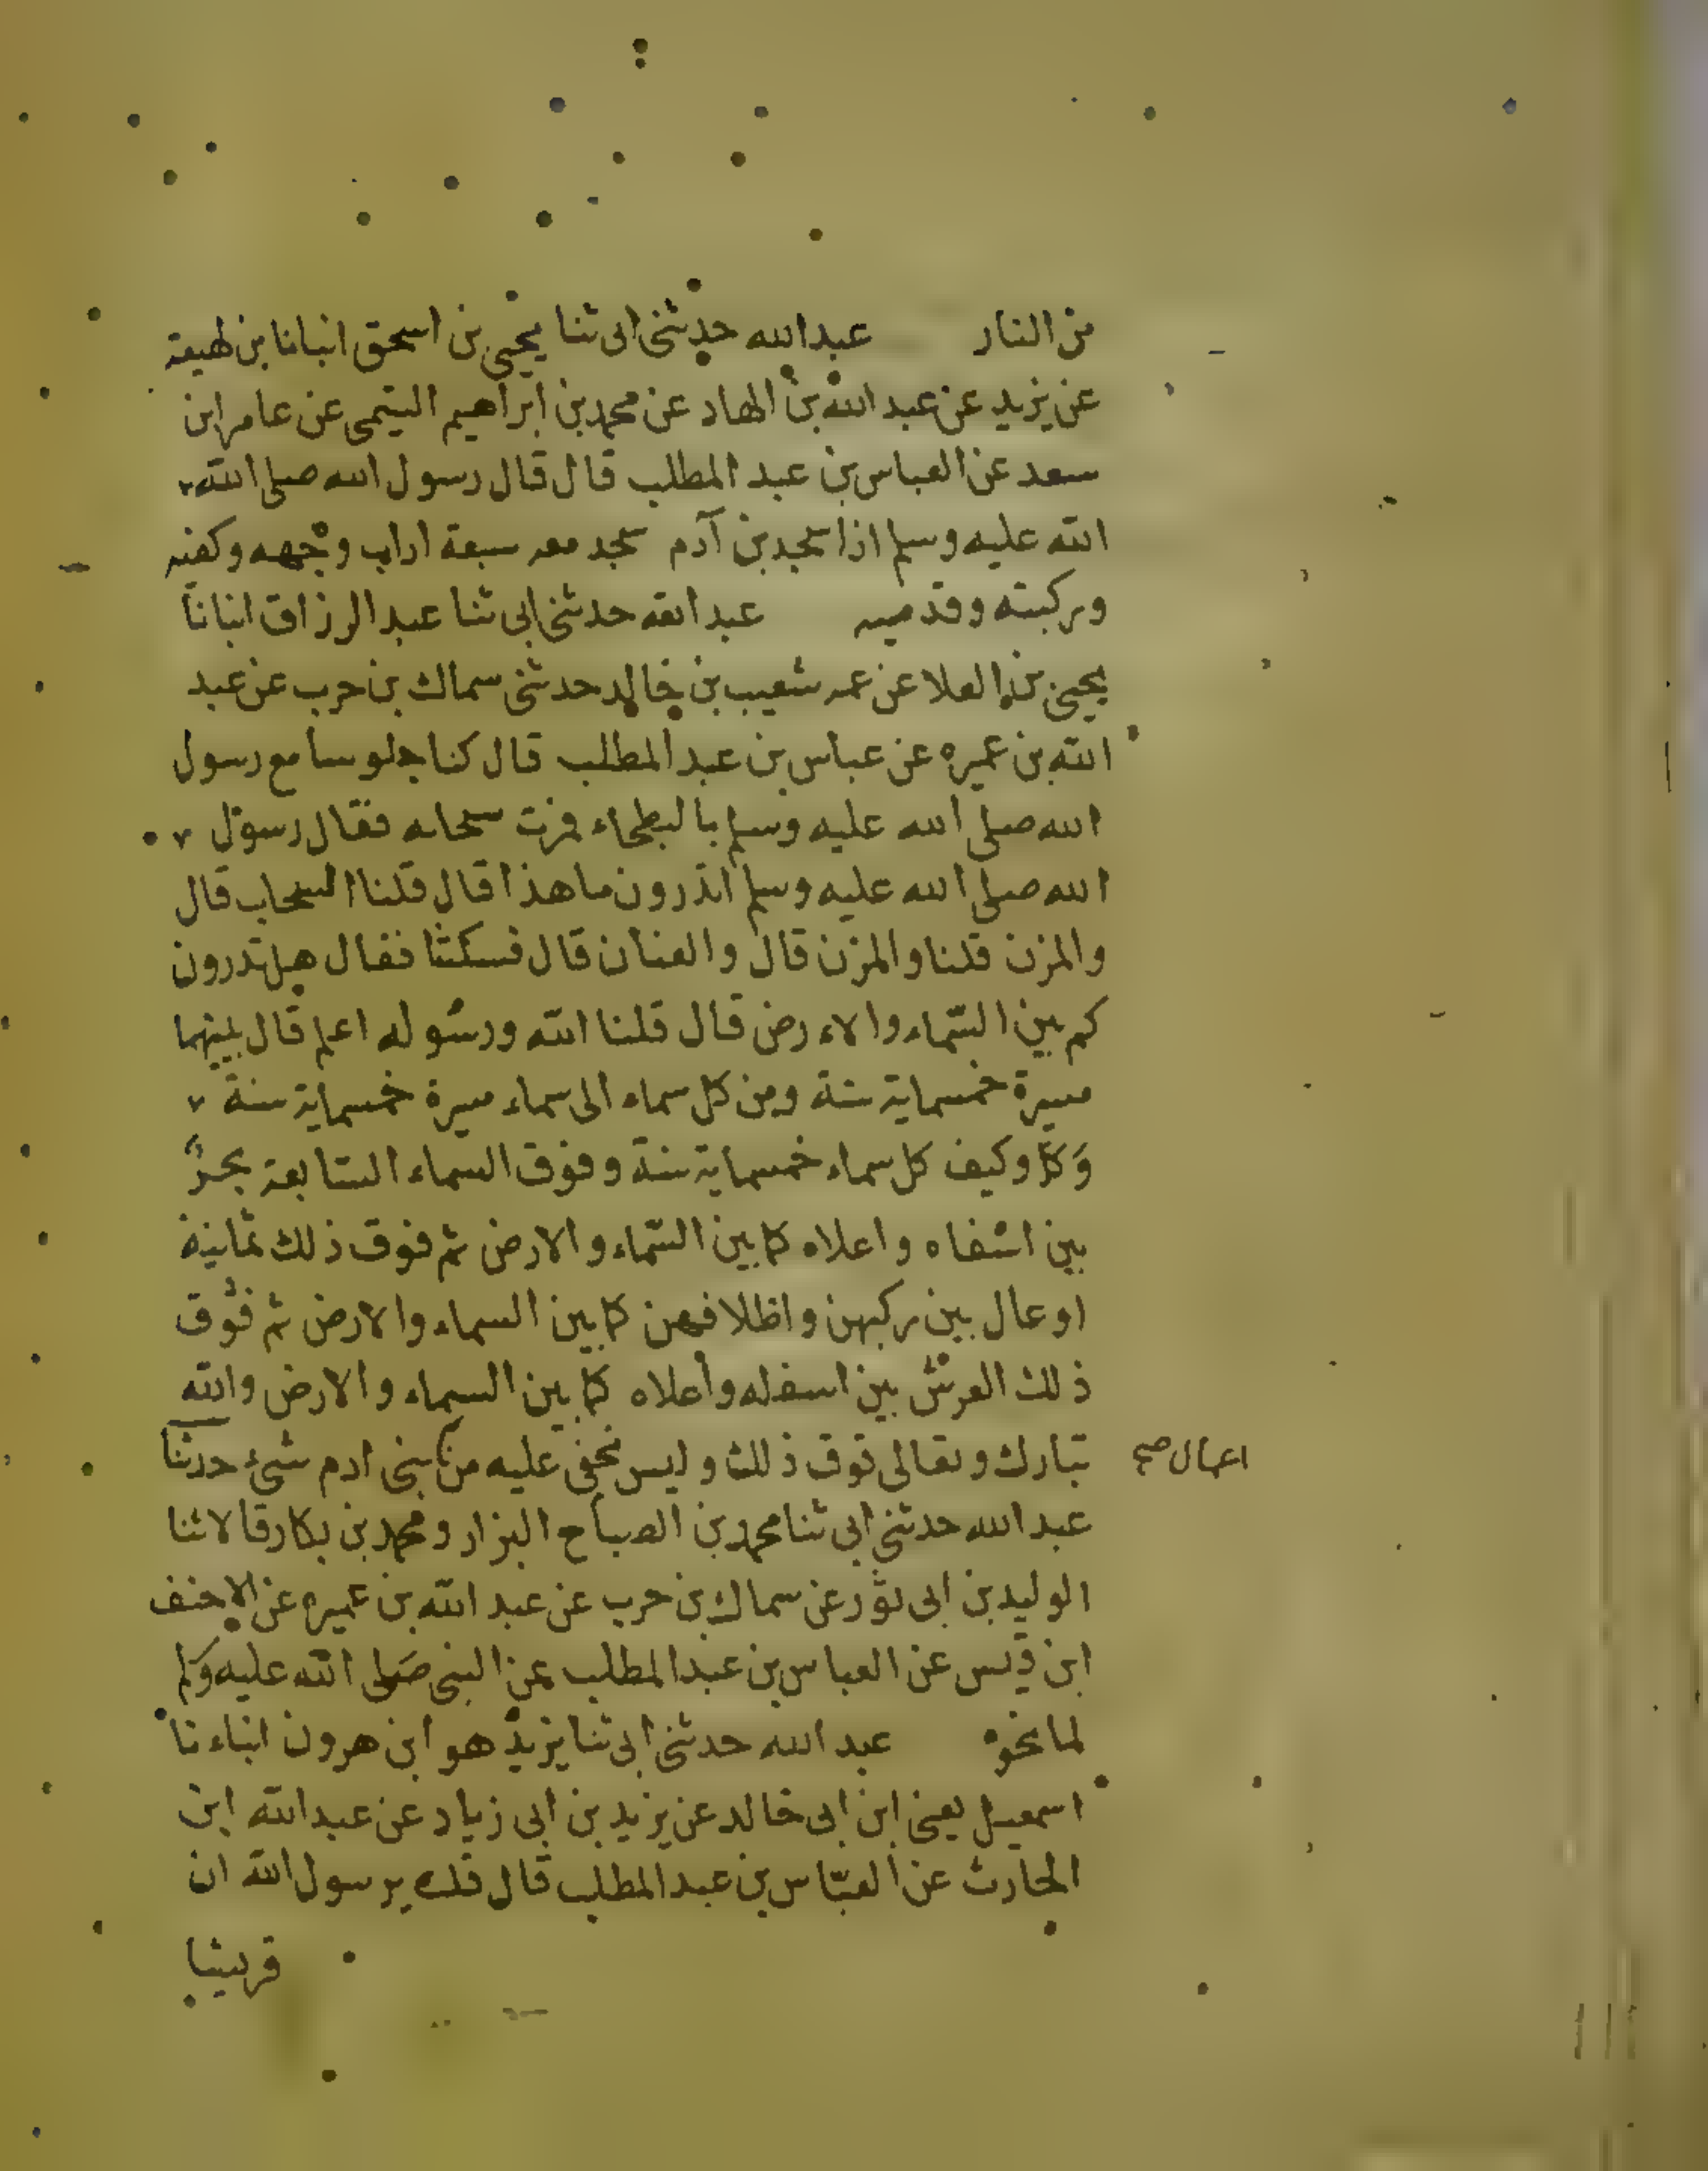 من النار عبد الله حدثنى ابى ثنا يحيى بن اسحق انبانا بن لهيعة
عن يزيد عن عبد الله بن الهاد عن محمد بن ابراهيم التيمى عن عامر ابن
سعد عن العباس بن عبد المطلب قال قال رسول الله صلى الله
الله عليه وسلم اذا سجد بن آدم سجد معه سبعة اراب وجهه وكفيه
وركبته وقدميه عبد الله حدثنى ابى ثنا عبد الرزاق انبانا
يحيى بن العلا عن عمه شعيب بن خالد حدثنى سماك بن حرب عن عبد
الله بن عميره عن عباس بن عبد المطلب قال كنا جلوسا مع رسول
الله صلى الله عليه وسلم بالبطحاء فمرت سحابه فقال رسول
الله صلى الله عليه وسلم اتدرون ما هذا قال قلنا السحاب قال
والمزن قلنا والمزن قال والعنان قال فسكتنا فقال هل تدرون
كم بين السماء والاءرض قال قلنا الله ورسوله اعلم قال بينهما
مسيرة خمسماية سنة ومن كل سماء الى سماء مسيرة خمسماية سنة
وكل وكيف كل سماء خمسماية سنة وفوق السماء السابعة بحر
بين اسفاه واعلاه كما بين السماء والارض ثم فوق ذلك ثمانية
اوعال بين ركبهن واظلافهن كما بين السماء والارض ثم فوق
ذلك العرش بين اسفله واعلاه كما بين السماء والارض والله
تبارك وتعالى فوق ذلك وليس يخفى عليه من بنى ادم شئ حدثنا
اعمال صح
عبد الله حدثنى ابى ثنا محمد بن الصباح البزار ومحمد بن بكار قالا ثنا
الوليد بن ابى ثور عن سماك بن حرب عن عبد الله بن عميره عن الاحنف
ابن قيس عن العباس بن عبد المطلب عن النبى صلى الله عليه وسلم
نحوه عبد الله حدثنى ابى ثنا يزيد هو ابن هرون انباءنا
اسمعيل يعنى ابن ابى خالد عن يزيد بن ابى زياد عن عبد الله ابن
الحارث عن العباس بن عبد المطلب قال قلت يرسول الله ان
قريشا